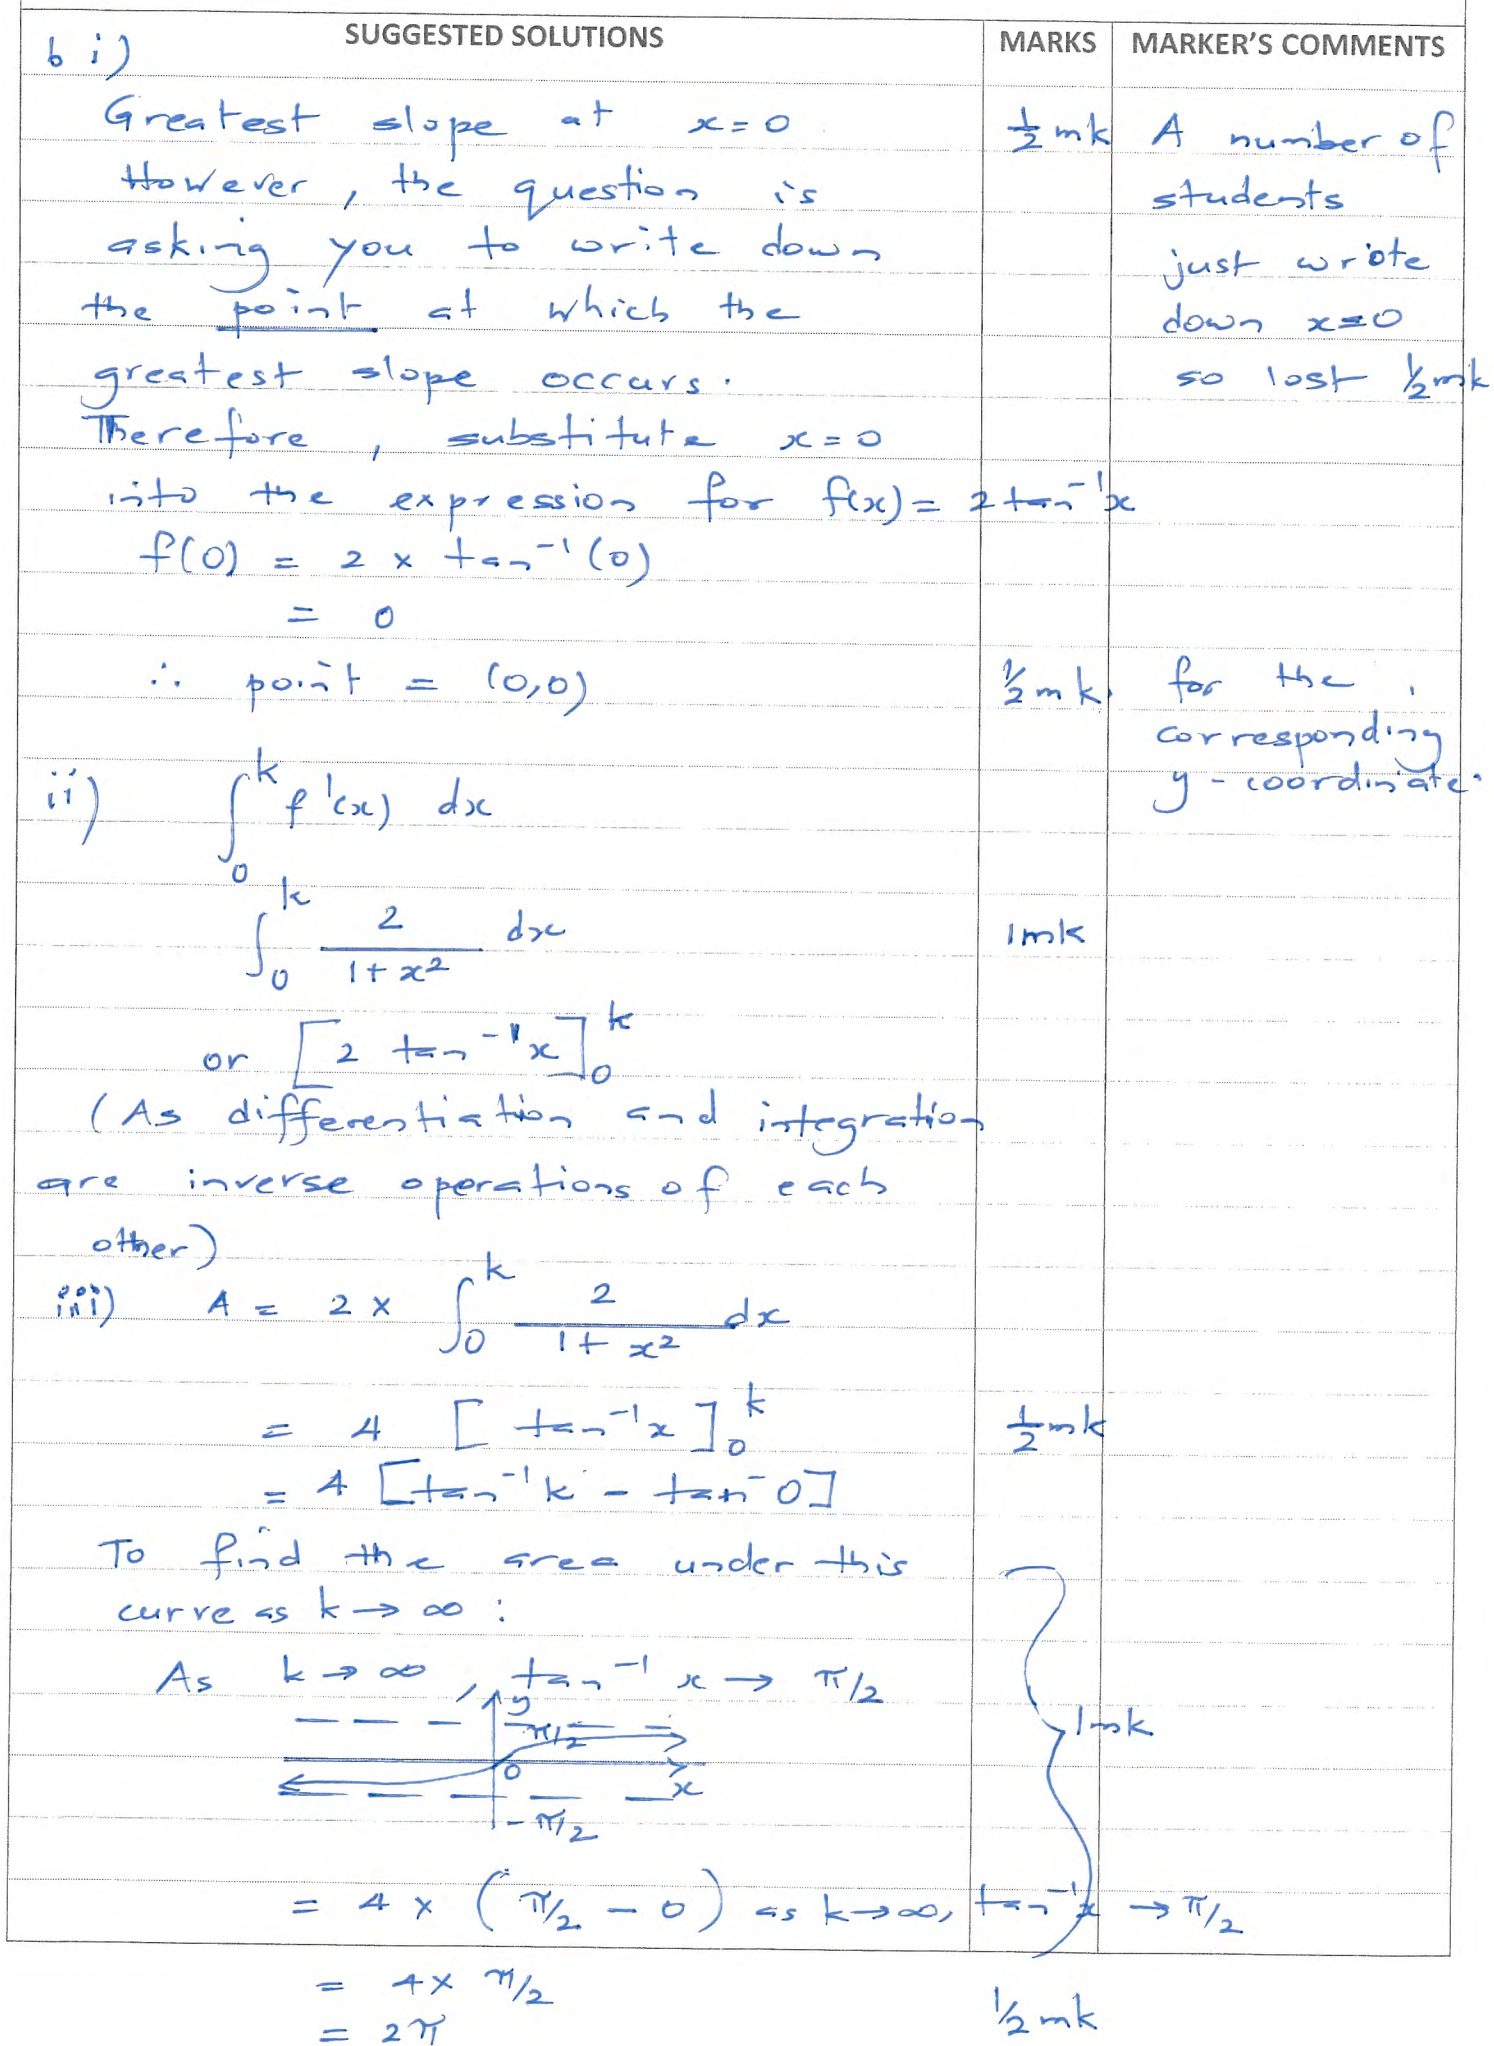 SUGGESTED SOLUTIONS MARKS MARKER'S COMMENTS
b i)
Greatest slope at x=0 ½ mk A number of
However, the question is students
asking you to write down just wrote
the point at which the down x=0
greatest slope occurs. so lost ½ mk
Therefore, substitute x=0
into the expression for f(x) = 2 tan⁻¹x
f(0) = 2 × tan⁻¹(0)
= 0
∴ point = (0,0) ½ mk for the
corresponding
y-coordinate.
ii) ∫₀ᵏ f'(x) dx
∫₀ᵏ 2/(1+x²) dx 1mk
or [2 tan⁻¹x]₀ᵏ
(As differentiation and integration
are inverse operations of each
other)
iii) A = 2 × ∫₀ᵏ 2/(1+x²) dx
= 4 [tan⁻¹x]₀ᵏ ½ mk
= 4 [tan⁻¹k - tan⁻0]
To find the area under this
curve as k → ∞ :
As k → ∞, tan⁻¹x → π/2
y
π/2
1mk
0
x
-π/2
= 4 × (π/2 - 0) as k→∞, tan⁻¹x → π/2
= 4 × π/2
= 2π ½ mk